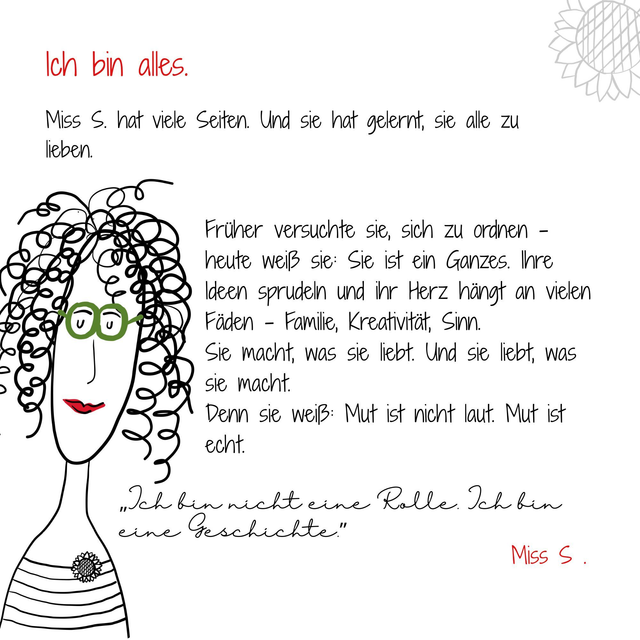 Ich bin alles.
Miss S. hat viele Seiten. Und sie hat gelernt, sie alle zu
lieben.
Früher versuchte sie, sich zu ordnen –
heute weiß sie: Sie ist ein Ganzes. Ihre
Ideen sprudeln und ihr Herz hängt an vielen
Fäden – Familie, Kreativität, Sinn.
Sie macht, was sie liebt. Und sie liebt, was
sie macht.
Denn sie weiß: Mut ist nicht laut. Mut ist
echt.
„Ich bin nicht eine Rolle. Ich bin
eine Geschichte.”
Miss S .